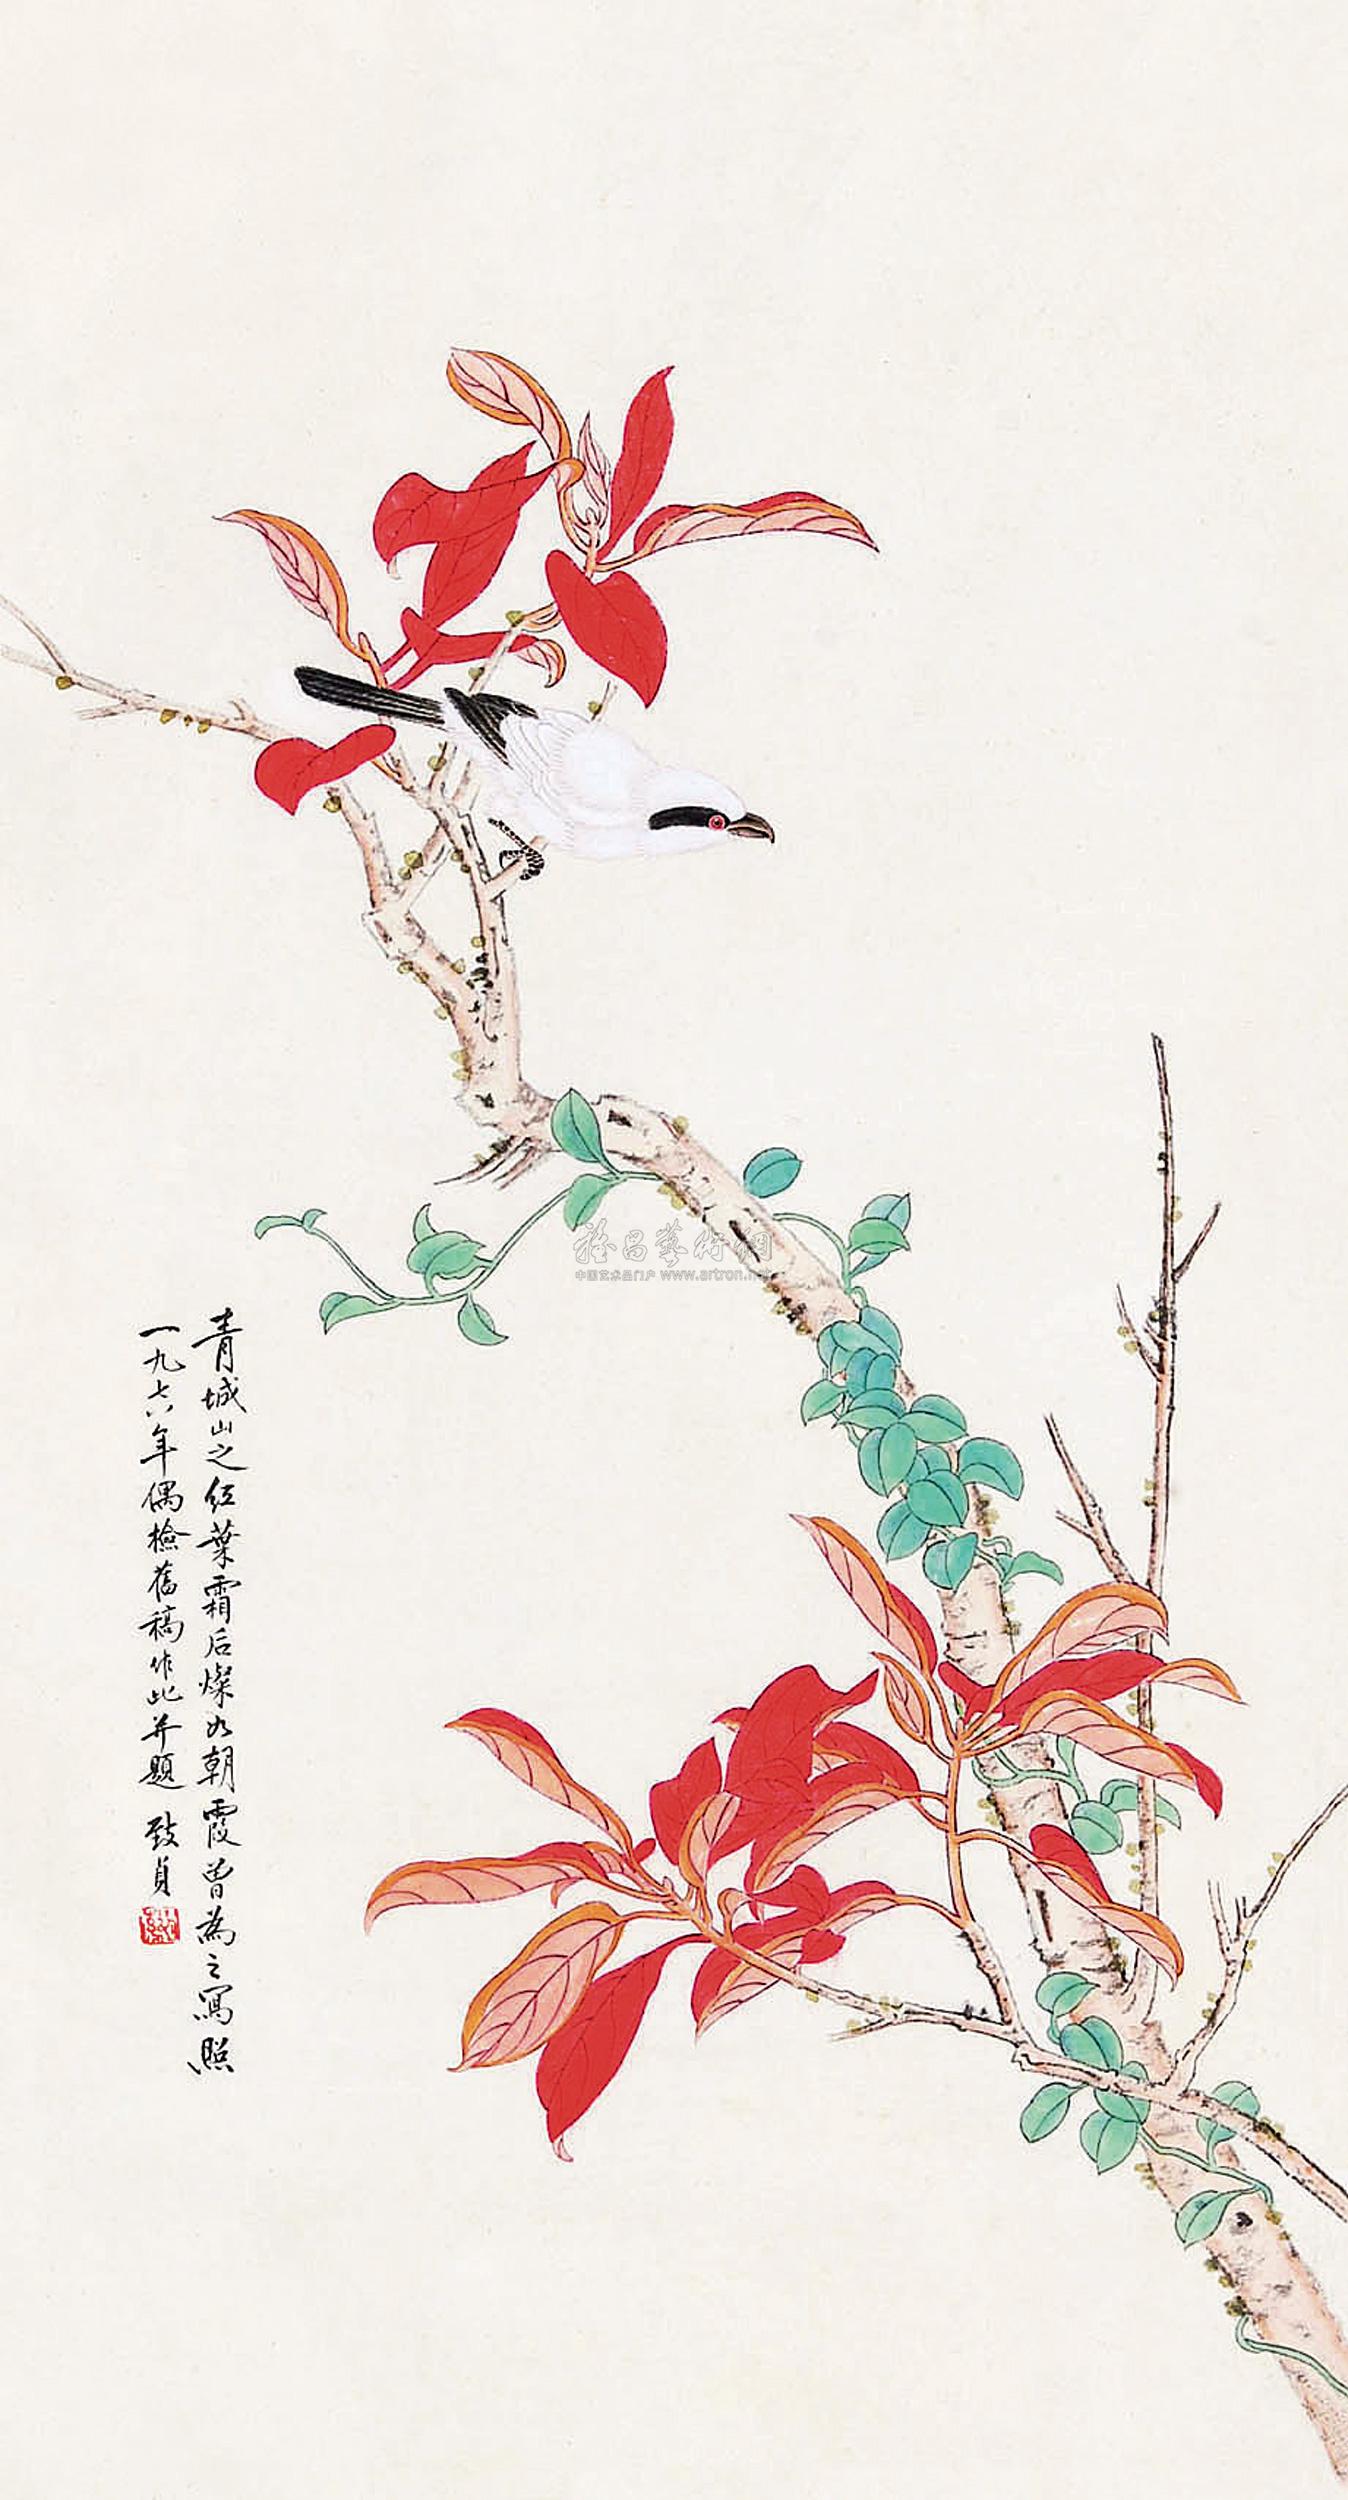 青城山之红葉霜后燦如朝霞曾為之寫照
一九七六年偶檢舊稿作此并題 致貞
雅昌藝術網
中国艺术品门户 www.artron.net